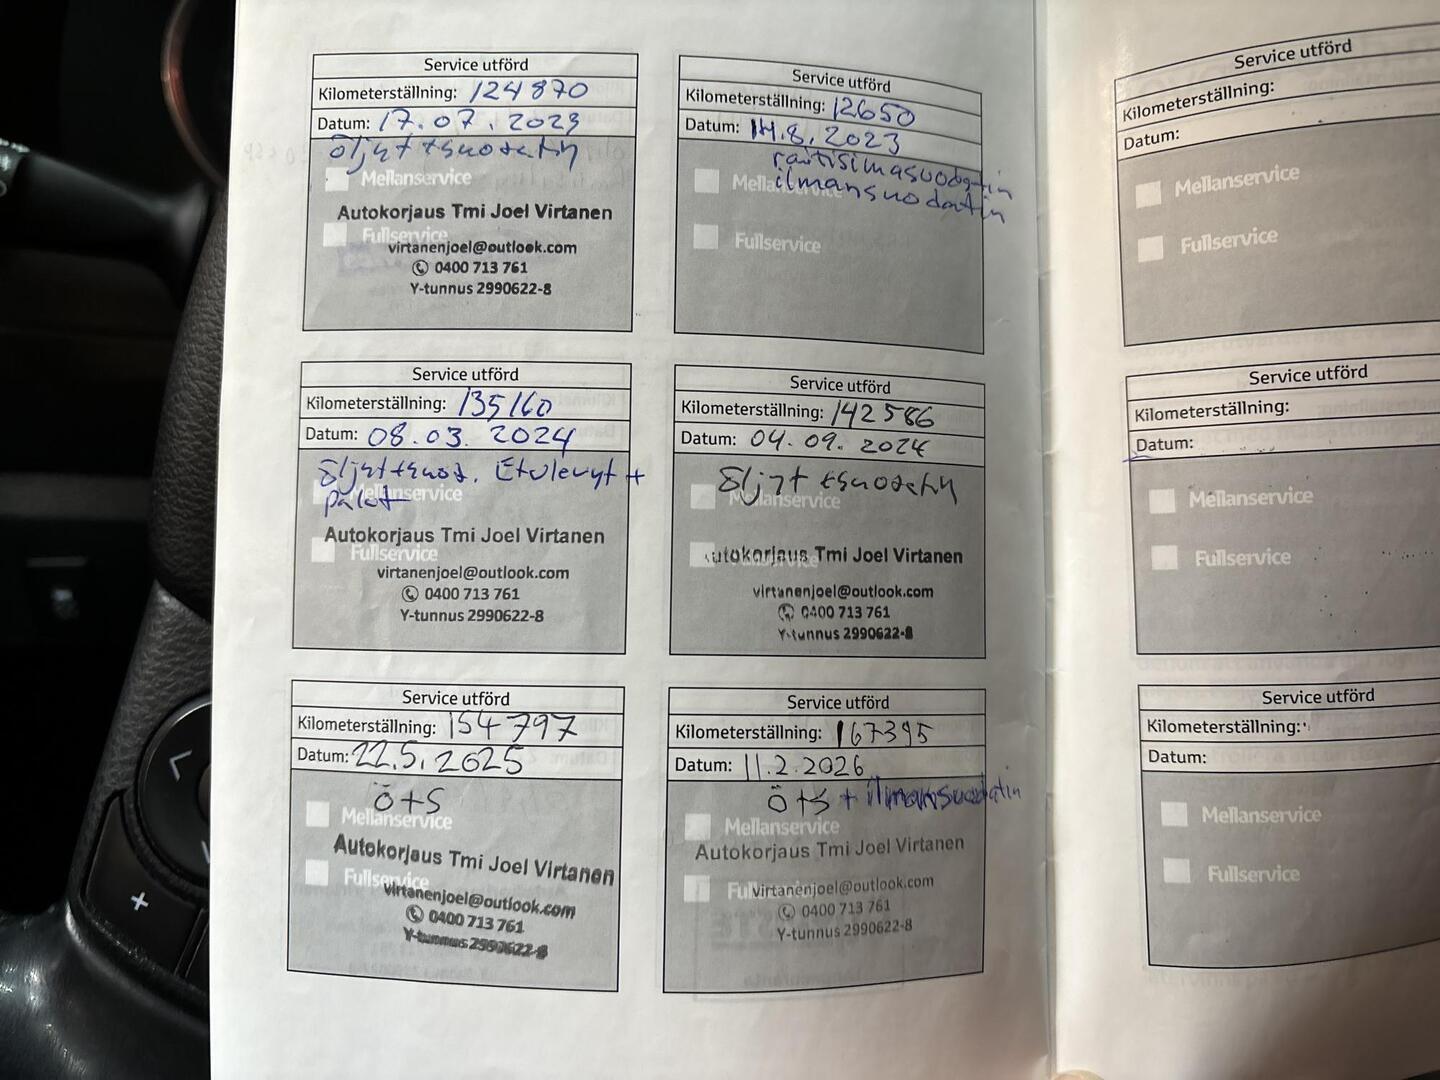 Service utförd
Kilometerställning: 124870
Datum: 17.07.2023
öljyt+suodatin
Mellanservice
Autokorjaus Tmi Joel Virtanen
Fullservice
virtanenjoel@outlook.com
0400 713 761
Y-tunnus 2990622-8
Service utförd
Kilometerställning: 12650
Datum: 14.8.2023
raitisimasuodatin
Mellanservice
ilmansuodatin
Fullservice
Service utförd
Kilometerställning: 135160
Datum: 08.03.2024
Öljyt+suod. Etulevyt +
palat
Mellanservice
Autokorjaus Tmi Joel Virtanen
Fullservice
virtanenjoel@outlook.com
0400 713 761
Y-tunnus 2990622-8
Service utförd
Kilometerställning: 142586
Datum: 04.09.2024
Öljyt+suodatin
Mellanservice
Autokorjaus Tmi Joel Virtanen
virtanenjoel@outlook.com
0400 713 761
Y-tunnus 2990622-8
Service utförd
Kilometerställning: 154797
Datum: 22.5.2025
Ö+S
Mellanservice
Autokorjaus Tmi Joel Virtanen
Fullservice
virtanenjoel@outlook.com
0400 713 761
Y-tunnus 2990622-8
Service utförd
Kilometerställning: 167395
Datum: 11.2.2026
Ö+S + ilmansuodatin
Mellanservice
Autokorjaus Tmi Joel Virtanen
Fullservice
virtanenjoel@outlook.com
0400 713 761
Y-tunnus 2990622-8
Service utförd
Kilometerställning:
Datum:
Mellanservice
Fullservice
Service utförd
Kilometerställning:
Datum:
Mellanservice
Fullservice
Service utförd
Kilometerställning:
Datum:
Mellanservice
Fullservice
+